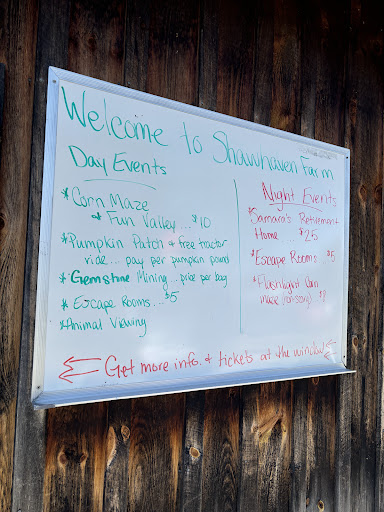 Welcome to Shawhaven Farm
Day Events
*Corn Maze
& Fun Valley... $10
*Pumpkin Patch & free tractor
ride.... pay per pumpkin pound
*Gemstone Mining... price per bag
*Escape Rooms... $5
*Animal Viewing
Night Events
*Samara's Retirement
Home.... $25
*Escape Rooms $5
*Flashlight Corn
Maze (not-scary) $8
Get more info. & tickets at the window